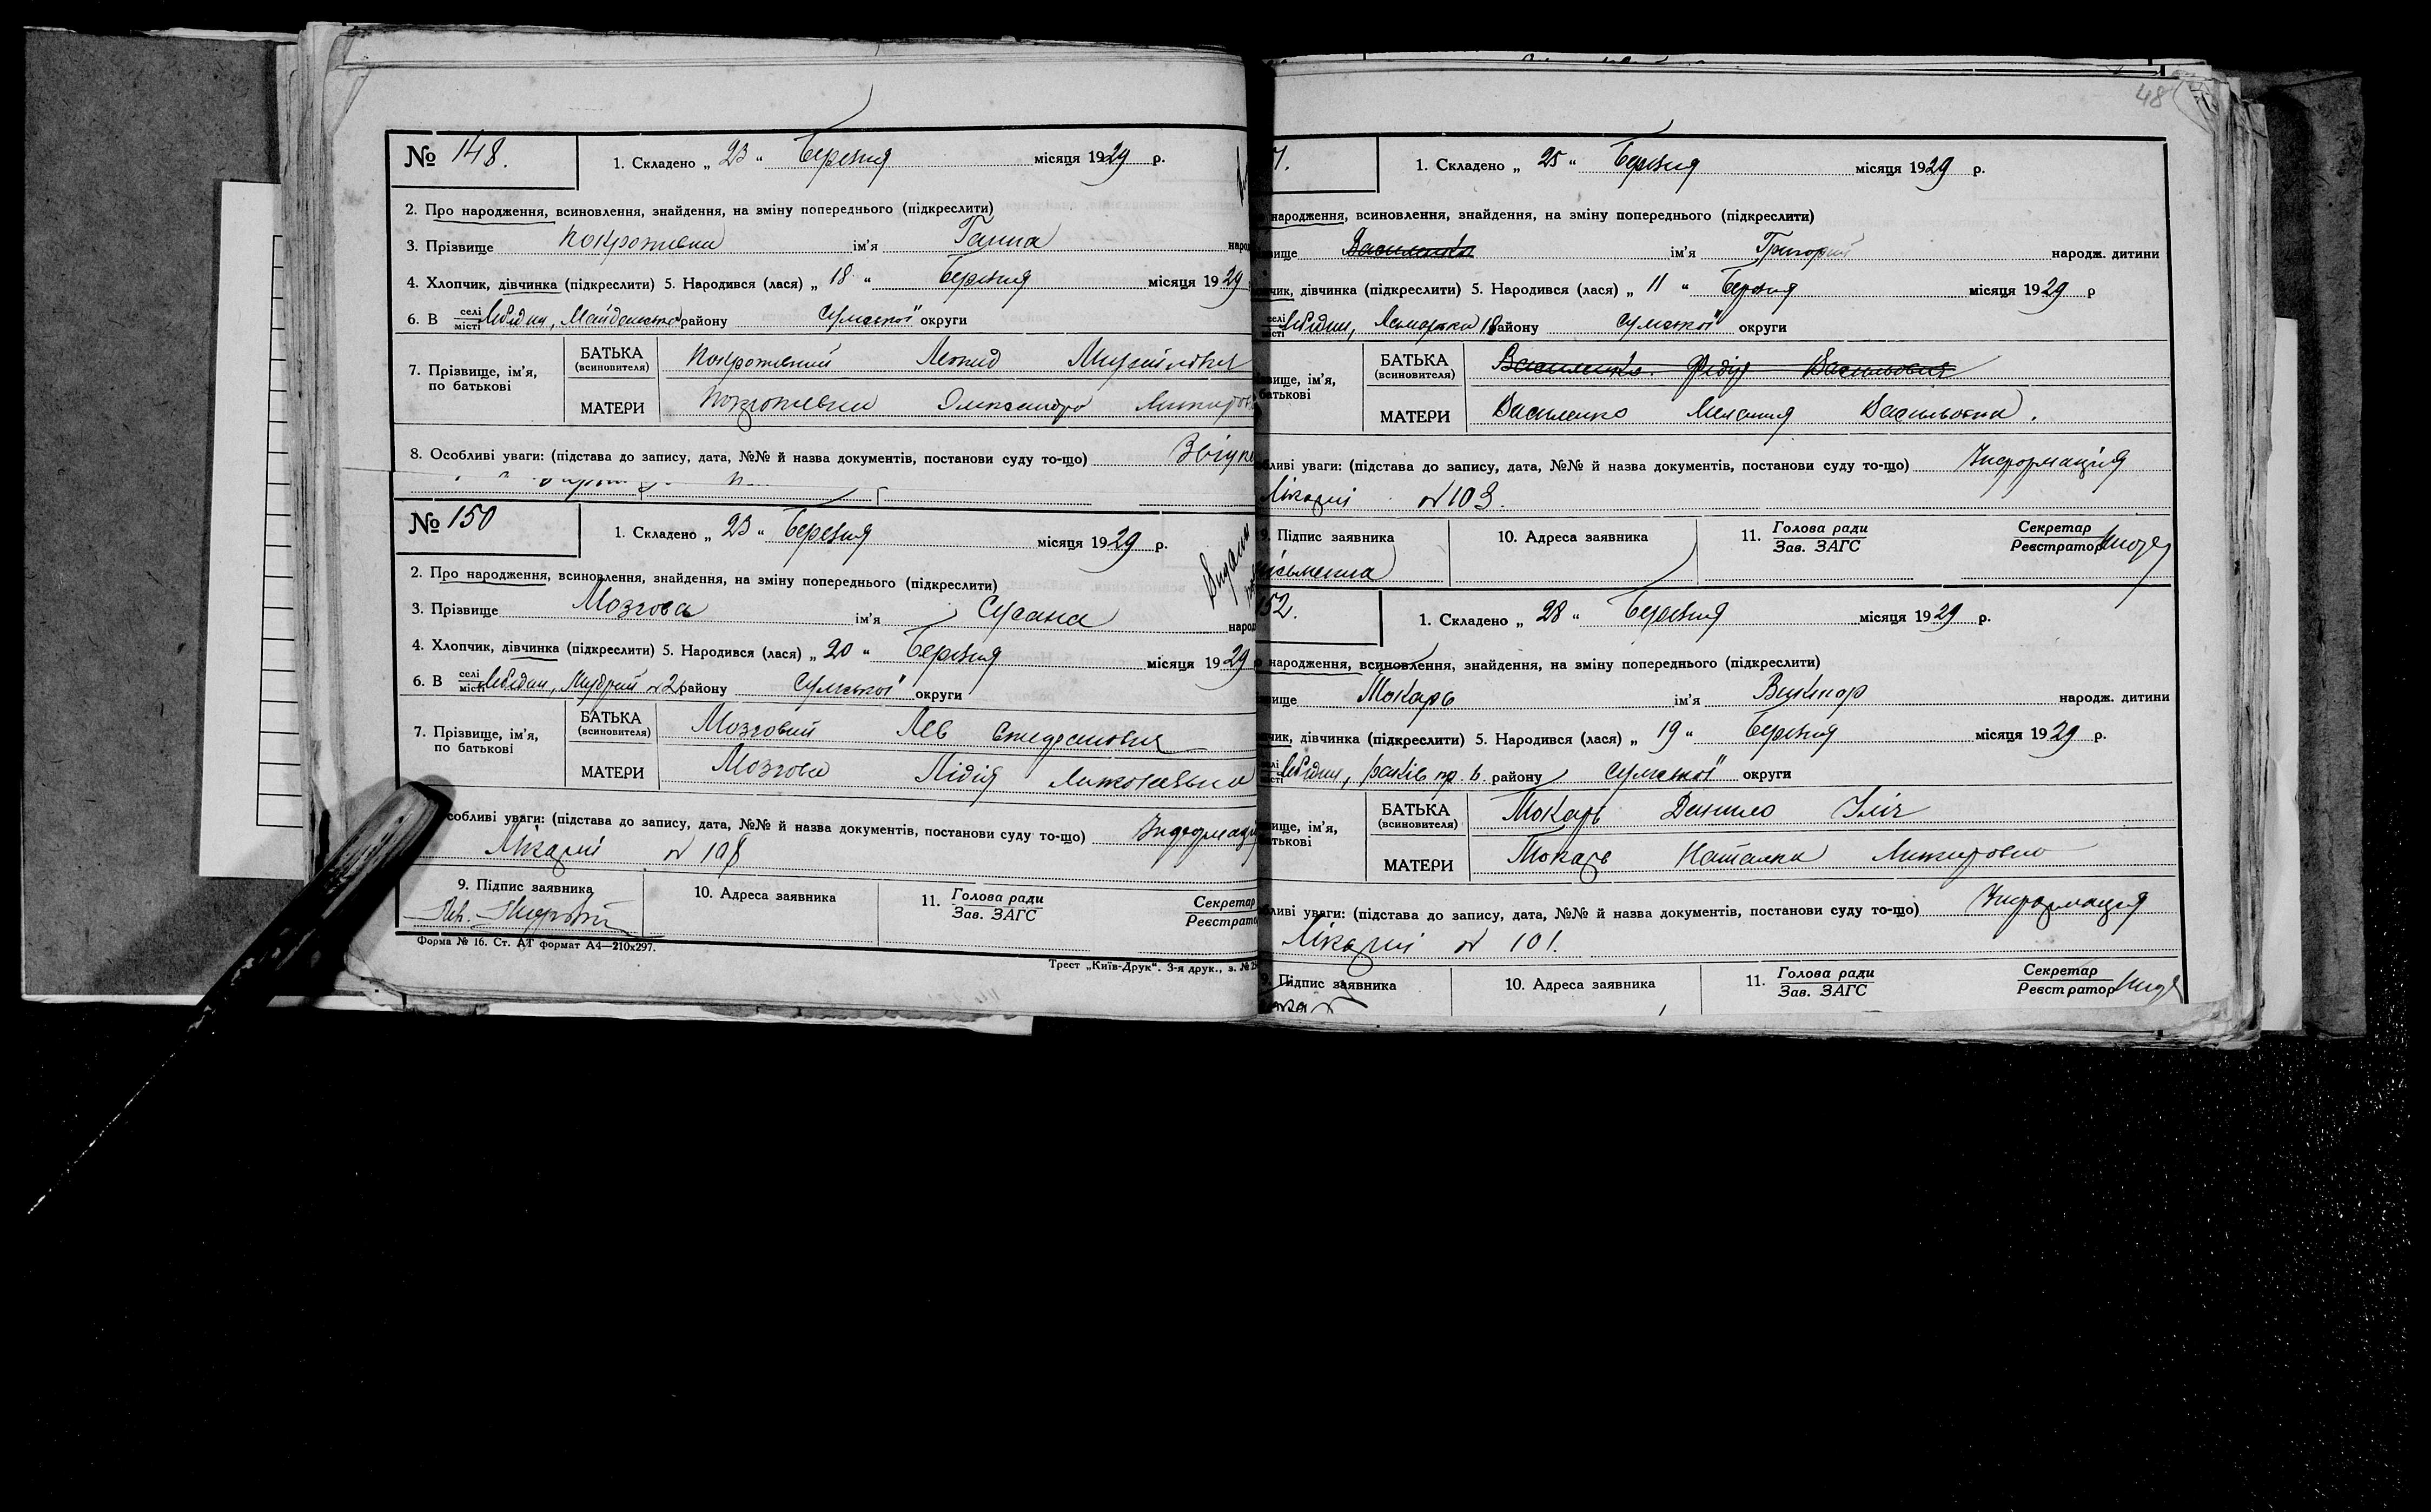 48
№ 148.
1. Складено „ 23 “ Березня місяця 1929 р.
2. Про народження, всиновлення, знайдення, на зміну попереднього (підкреслити)
3. Прізвище ім'я Ганна народ
4. Хлопчик, дівчинка (підкреслити) 5. Народився (лася) „ 18 “ Березня місяця 1929
6. В селі місті Лебедин, району Сумської округи
7. Прізвище, ім'я, по батькові
БАТЬКА (всиновителя) Леонид Михайлович
МАТЕРИ Олександра
8. Особливі уваги: (підстава до запису, дата, №№ й назва документів, постанови суду то-що)
№ 150
1. Складено „ 23 “ Березня місяця 1929 р.
2. Про народження, всиновлення, знайдення, на зміну попереднього (підкреслити)
3. Прізвище Мозгова ім'я Сусана народ
4. Хлопчик, дівчинка (підкреслити) 5. Народився (лася) „ 20 “ Березня місяця 1929
6. В селі місті Лебедин, району Сумської округи
7. Прізвище, ім'я, по батькові
БАТЬКА (всиновителя) Мозговий Лев
МАТЕРИ Мозгова Лідія
собливі уваги: (підстава до запису, дата, №№ й назва документів, постанови суду то-що) Інформац
Лікарні №
9. Підпис заявника 10. Адреса заявника 11. Голова ради Зав. ЗАГС Секретар Реєстрато
Форма № 16. Ст. АТ формат А4—210х297.
Трест „Київ-Друк“. 3-я друк., з. №
1. Складено „ 25 “ Березня місяця 1929 р.
народження, всиновлення, знайдення, на зміну попереднього (підкреслити)
вище Василенко ім'я Григорий народж. дитини
чик, дівчинка (підкреслити) 5. Народився (лася) „ 11 “ Березня місяця 1929 р
селі місті Лебедин, району Сумської округи
вище, ім'я, батькові
БАТЬКА (всиновителя) Василенко Федір Васильович
МАТЕРИ Василенко Мелания Васильовна.
бливі уваги: (підстава до запису, дата, №№ й назва документів, постанови суду то-що) Інформація
Лікарні № 103.
9. Підпис заявника 10. Адреса заявника 11. Голова ради Зав. ЗАГС Секретар Реєстратор
52.
1. Складено „ 28 “ Березня місяця 1929 р.
народження, всиновлення, знайдення, на зміну попереднього (підкреслити)
вище Мокарь ім'я Виктор народж. дитини
чик, дівчинка (підкреслити) 5. Народився (лася) „ 19 “ Березня місяця 1929 р.
селі місті Лебедин, району Сумської округи
вище, ім'я, батькові
БАТЬКА (всиновителя) Мокарь Данило Іліч
МАТЕРИ Мокарь Наталка
бливі уваги: (підстава до запису, дата, №№ й назва документів, постанови суду то-що) Інформация
Лікарні № 101.
9. Підпис заявника 10. Адреса заявника 11. Голова ради Зав. ЗАГС Секретар Реєстратор